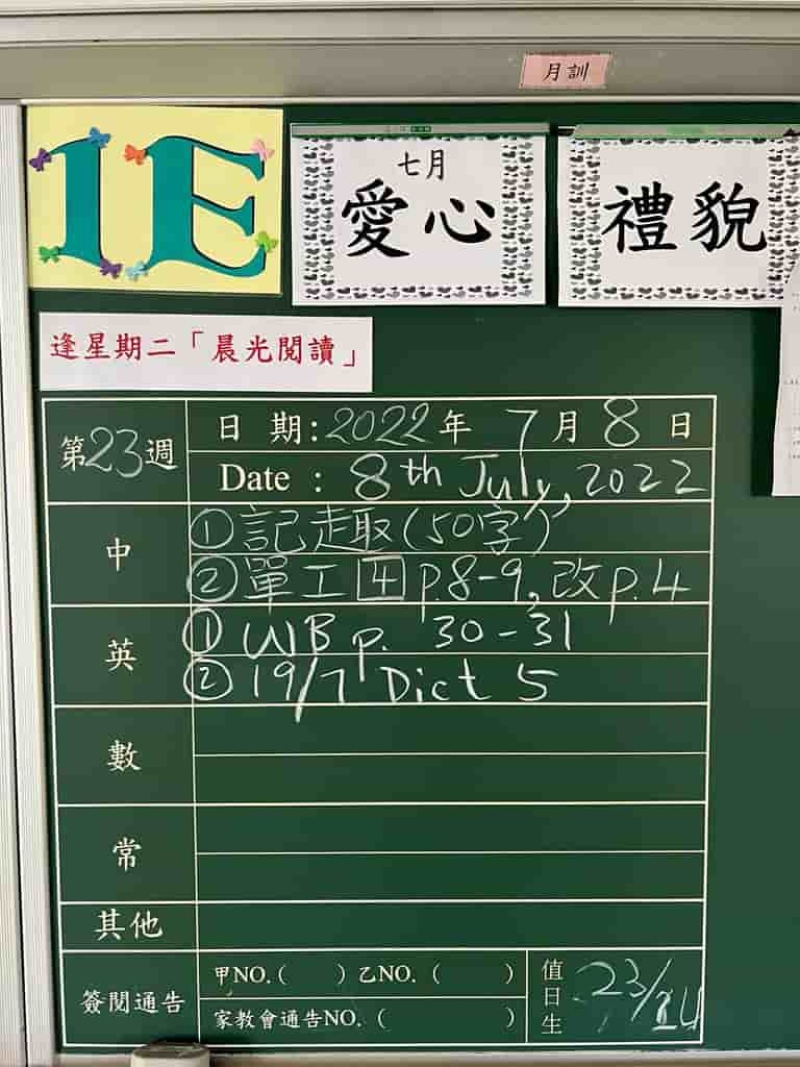 月訓
1E
七月
愛心
禮貌
逢星期二「晨光閱讀」
第23週
日 期:2022年 7月8日
Date : 8th July, 2022
中
①記走趣(50字)
②單工4 p.8-9,改p.4
英
①WB p. 30-31
②19/7 Dict 5
數
常
其他
簽閱通告
甲NO.( ) 乙NO.( )
家教會通告NO.( )
值日生
23/24